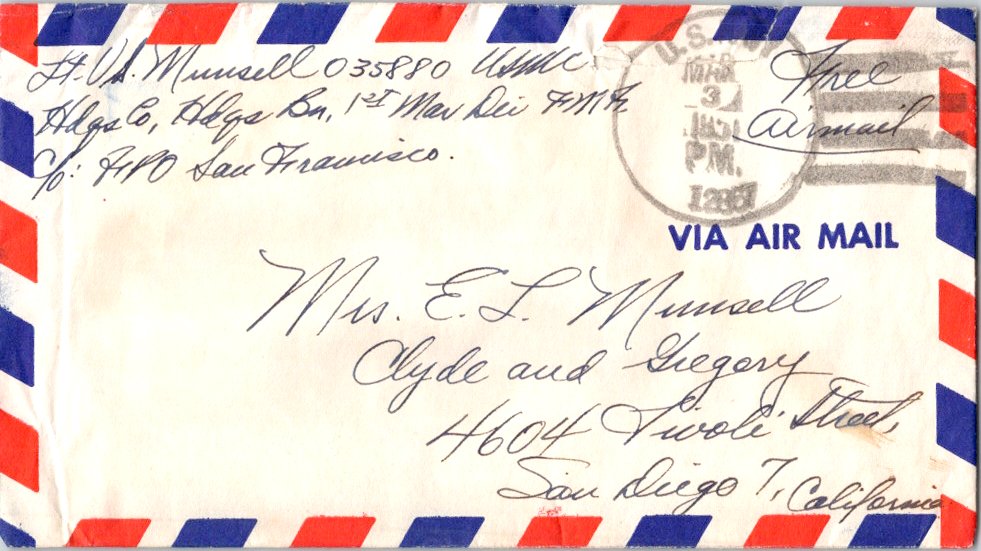 Lt. V.A. Munsell 035880 USMC
Hdqs Co, Hdqs Bn, 1st Mar Div FMF
c/o: FPO San Francisco.
U.S. NAVY
MAR
3
1951
PM.
12867
Free
Airmail
VIA AIR MAIL
Mrs. E. L. Munsell
Clyde and Gregory
4604 Tivoli Street,
San Diego 7, California